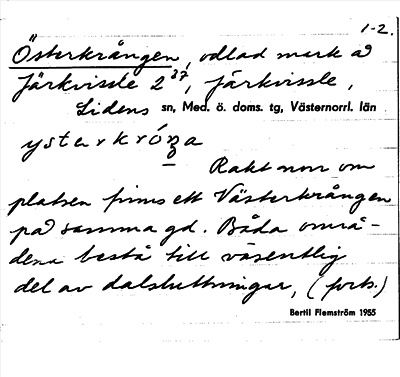 1-2.
Österkrången, odlad mark å
Järkvissle 2³⁷, Järkvissle,
Lidens sn, Med. ö. doms. tg, Västernorrl. län
ysterkróŋa
Rakt norr om
platsen finns ett Västerkrången
på samma gd. Båda områ-
dena bestå till väsentlig
del av dalsluttningar, (forts.)
Bertil Flemström 1955